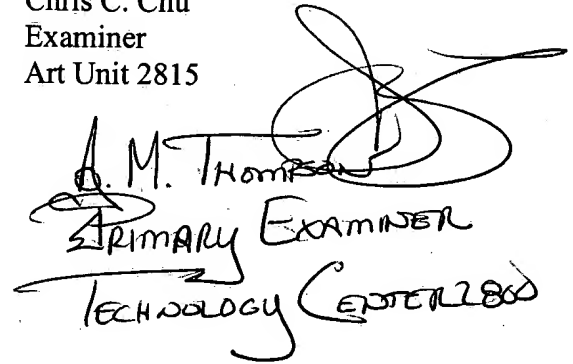 Chris C. Chu
Examiner
Art Unit 2815
A. M. THOMPSON
PRIMARY EXAMINER
TECHNOLOGY CENTER 2800